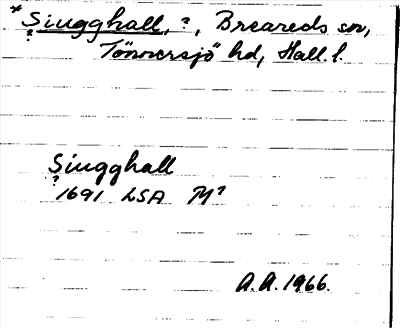 *Siugghall, ?, Breareds sn,
?
Tönnersjö hd, Hall. l.
Siugghall
?
1691 LSA M?
A.A. 1966.